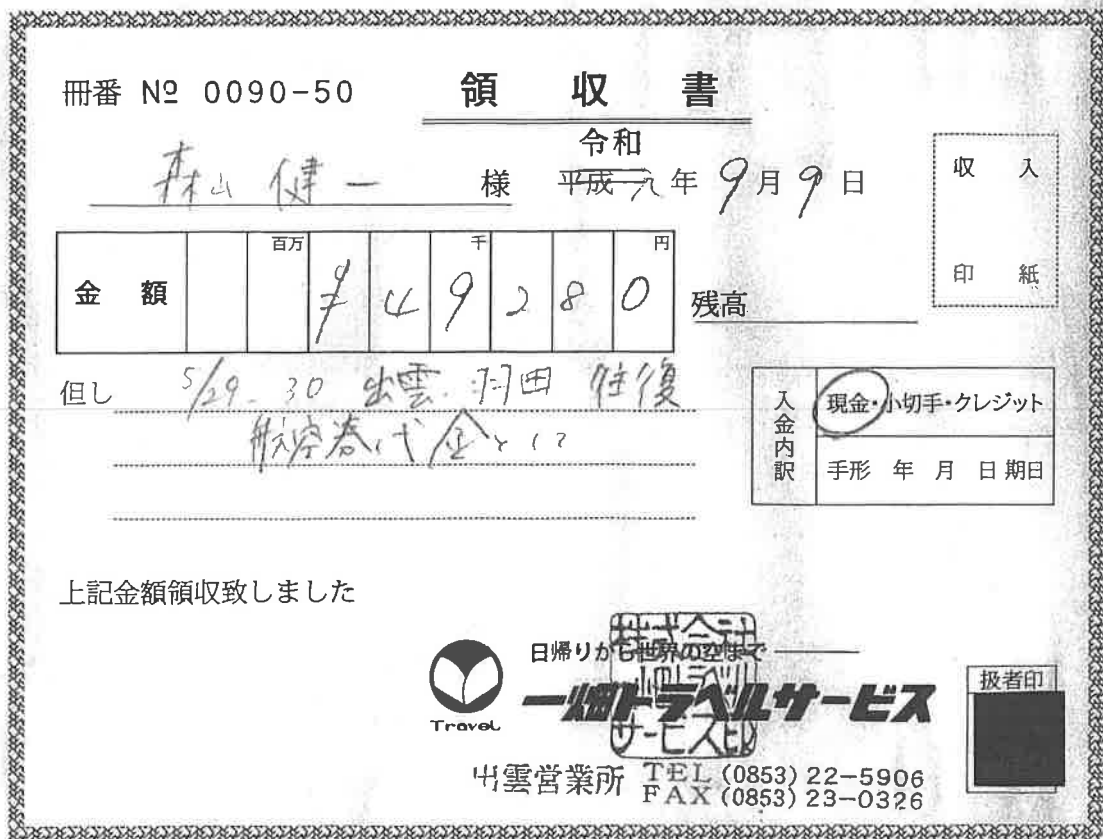 冊番 № 0090-50
領収書
令和
森山 健一 様 平成 元 年 9月9日
収入
印紙
金額 百万 千 円
¥49280
残高
但し 5/29.30 出雲.羽田 往復
航空券代金として
入金内訳
現金・小切手・クレジット
手形 年 月 日期日
上記金額領収致しました
日帰りから世界の空まで
一畑トラベルサービス
Travel
扱者印
出雲営業所 TEL (0853) 22-5906
FAX (0853) 23-0326